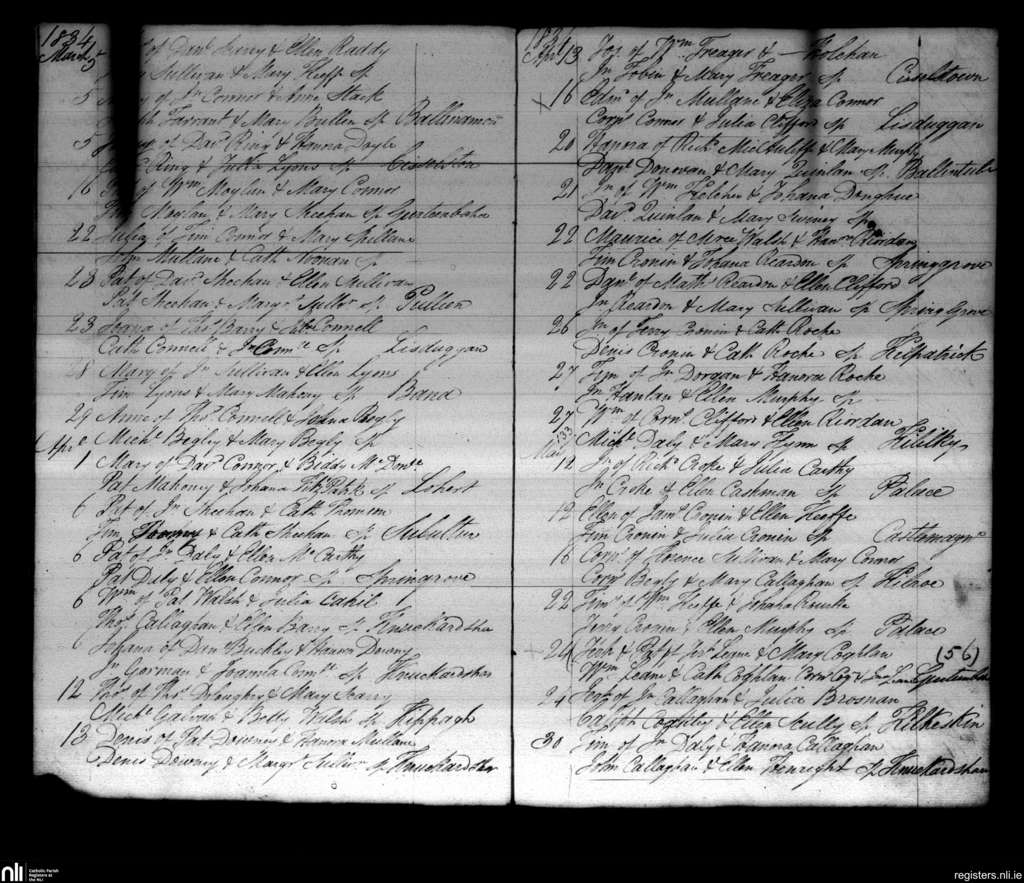 1834
March 5 of Danl Leary & Ellen Raddy
Sullivan & Mary Keeffe Sp
5 of Jn Connor & Anne Stack
Tarrant & Mary Bullen Sp Ballinamon
5 of Davd Ring & Hanna Doyle
Ring & Lyons Sp
16 of Wm Moylan & Mary Connor
Moylan & Mary Sheehan Sp Gurteenbaha
22 Julia of Tim Connor & Mary Spillane
John Mullane & Cath Noonan Sp
23 Pat of Davd Sheehan & Ellen Sullivan
Pat Sheehan & Margt Sullv Sp Pullen
23 Joana of Thos Barry & Connell
Cath Connell & Jn Connll Sp Lisduggan
28 Mary of Jn Sullivan & Ellen Lyons
Tim Lyons & Mary Mahony Sp
29 Anne of Thos Connell & Johna Begly
Michl Begley & Mary Begly Sp
Aprl
1 Mary of Davd Connor & Biddy McDonl
Pat Mahoney & Johana Fitz Patk Sp Lohort
6 Pat of Jn Sheehan & Cath Thomson
Tim & Cath Sheehan Sp Subulter
6 Pat of Jn Daly & Ellen McCarthy
Pat Daly & Ellen Connor Sp Springrove
6 Wm of Pat Walsh & Julia Cahil
Thos Callaghan & Ellen Barry Sp Knuckardsha
6 Johana of Dan Buckley & Hanora Downy
Jn Gorman & Joanna Connl Sp Knuckardshan
12 of Thos Dloughry & Mary Leary
Michl Galvan & Betty Walsh Sp Kippagh
13 Denis of Pat Downey & Hanora Mullane
Denis Downey & Margt Sp Knuckardsha
1834
Aprl 13 of Wm Treager & Holehan
Jn Tobin & Mary Treager Sp
16 Edmd of Jn Mullane & Eliza Connor
Corns Connor & Julia Clifford Sp Lisduggan
20 Hanora of Richd McAuliffe & Mary Murphy
Danl Donovan & Mary Quinlan Sp Ballintubr
21 Jn of Wm & Johana Donghue
Davd Quinlan & Mary Twiney Sp
22 Maurice of Mce Walsh & Hanra Riordan
Tim Cronin & Johana Reardon Sp Springgrove
22 Danl of Mathw Reardon & Ellen Clifford
Jn Reardon & Mary Sullivan Sp Spring Grove
26 Jn of Jerry Cronin & Cath Roche
Denis Cronin & Cath Roche Sp Kilpatrick
27 Tim of Jn Dorgan & Hanora Roche
Jn Hanlan & Ellen Murphy Sp
27 Wm of Corns Clifford & Ellen Riordan
Michl Daly & Mary Flynn Sp
May
12 Jn of Richd Croke & Julia Carthy
Jn Croke & Ellen Cashman Sp Palace
12 Ellen of Jams Cronin & Ellen Keeffe
Tim Cronin & Julia Cronin Sp Castlemagnr
16 Corns of Florence Sullivan & Mary Connor
Corns Begly & Mary Callaghan Sp
22 Timy of Wm Keeffe & Johana Rourke
Jerry Cronin & Ellen Murphy Sp Palace
24 & Pat of & Mary Coghlan (56)
Wm Leane & Cath Coghlan
24 of Jn Callaghan & Julia Brosnan
& Ellen Scully Sp
30 Tim of Jn Daly & Hanora Callaghan
John Callaghan & Ellen Henright Sp Knuckardshan
nli
Catholic Parish
Registers at
the NLI
registers.nli.ie